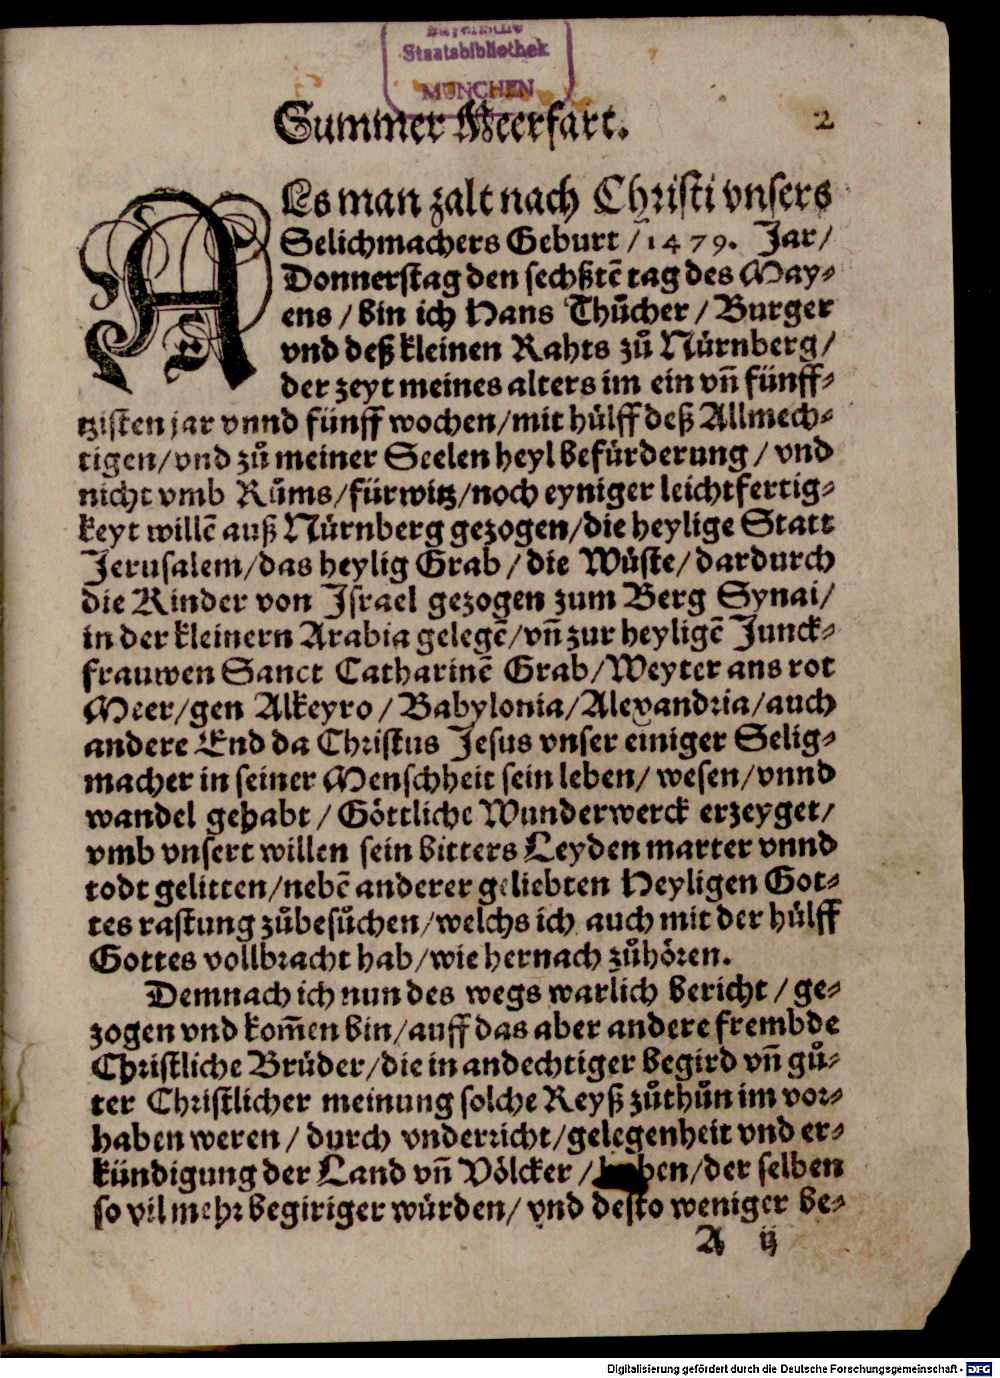 Bayerische
Staatsbibliothek
MÜNCHEN
Summer Meerfart. 2
ALs man zalt nach Christi vnsers
Selichmachers Geburt / 1479. Jar /
Donnerstag den sechßtẽ tag des May-
ens / bin ich Hans Thůcher / Burger
vnd deß kleinen Rahts zů Nürnberg /
der zeyt meines alters im ein vñ fünff-
tzisten jar vnnd fünff wochen / mit hülff deß Allmech-
tigen / vnd zů meiner Seelen heyl befürderung / vnd
nicht vmb Růms / fürwitz / noch eyniger leichtfertig-
keyt willẽ auß Nürnberg gezogen / die heylige Statt
Jerusalem / das heylig Grab / die Wüste / dardurch
die Kinder von Israel gezogen zum Berg Synai /
in der kleinern Arabia gelegẽ / vñ zur heyligẽ Junck-
frauwen Sanct Catharinẽ Grab / Weyter ans rot
Meer / gen Alkeyro / Babylonia / Alexandria / auch
andere End da Christus Jesus vnser einiger Selig-
macher in seiner Menschheit sein leben / wesen / vnnd
wandel gehabt / Göttliche Wunderwerck erzeyget /
vmb vnsert willen sein bitters Leyden marter vnnd
todt gelitten / nebẽ anderer geliebten Heyligen Got-
tes rastung zůbesůchen / welchs ich auch mit der hülff
Gottes vollbracht hab / wie hernach zůhören.
Demnach ich nun des wegs warlich bericht / ge-
zogen vnd kom̃en bin / auff das aber andere frembde
Christliche Brüder / die in andechtiger begird vñ gů-
ter Christlicher meinung solche Reyß zůthůn im vor-
haben weren / durch vnderricht / gelegenheit vnd er-
kündigung der Land vñ Völcker / haben / der selben
so vil mehr begiriger würden / vnd desto weniger be-
A ij
Digitalisierung gefördert durch die Deutsche Forschungsgemeinschaft - DFG